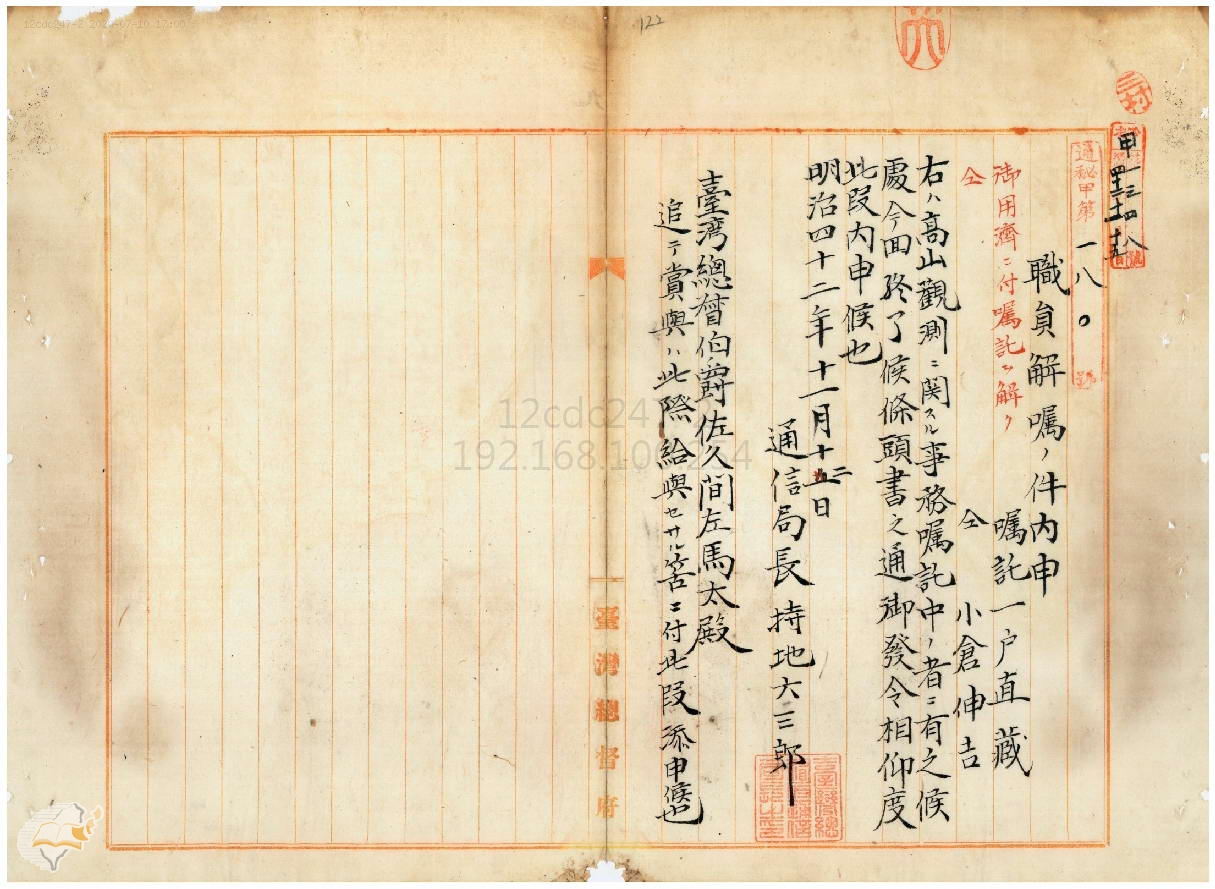 122
三村
甲一三四八號
通秘甲第一八〇號
職員解嘱ノ件内申
御用濟ニ付嘱託ヲ解ク 嘱託 一戸直蔵
仝 仝 小倉伸吉
右ハ高山觀測ニ関スル事務嘱託中ノ者ニ有之候
處今回終了候條頭書之通御發令相仰度
此段内申候也
明治四十二年十一月十二日
通信局長 持地六三郎
臺湾總督伯爵佐久間左馬太殿
追テ賞與ハ此際給與セサル筈ニ付此段添申候也
臺灣總督府
12cdc247-2
192.168.100.254